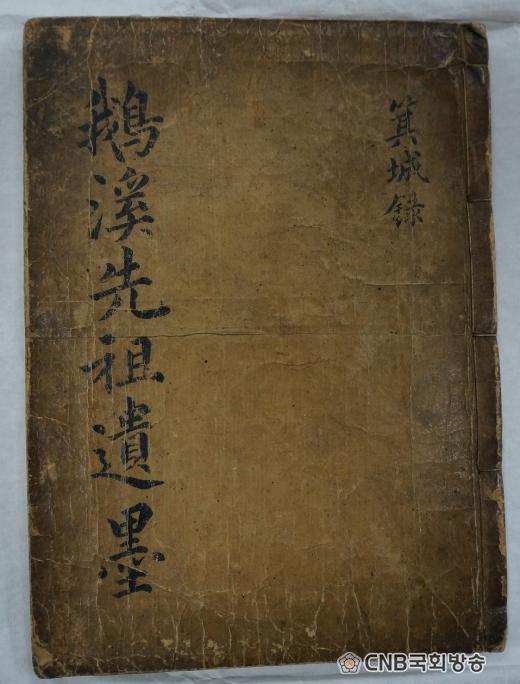 箕城録
鵝溪先祖遺墨
CNB국회방송